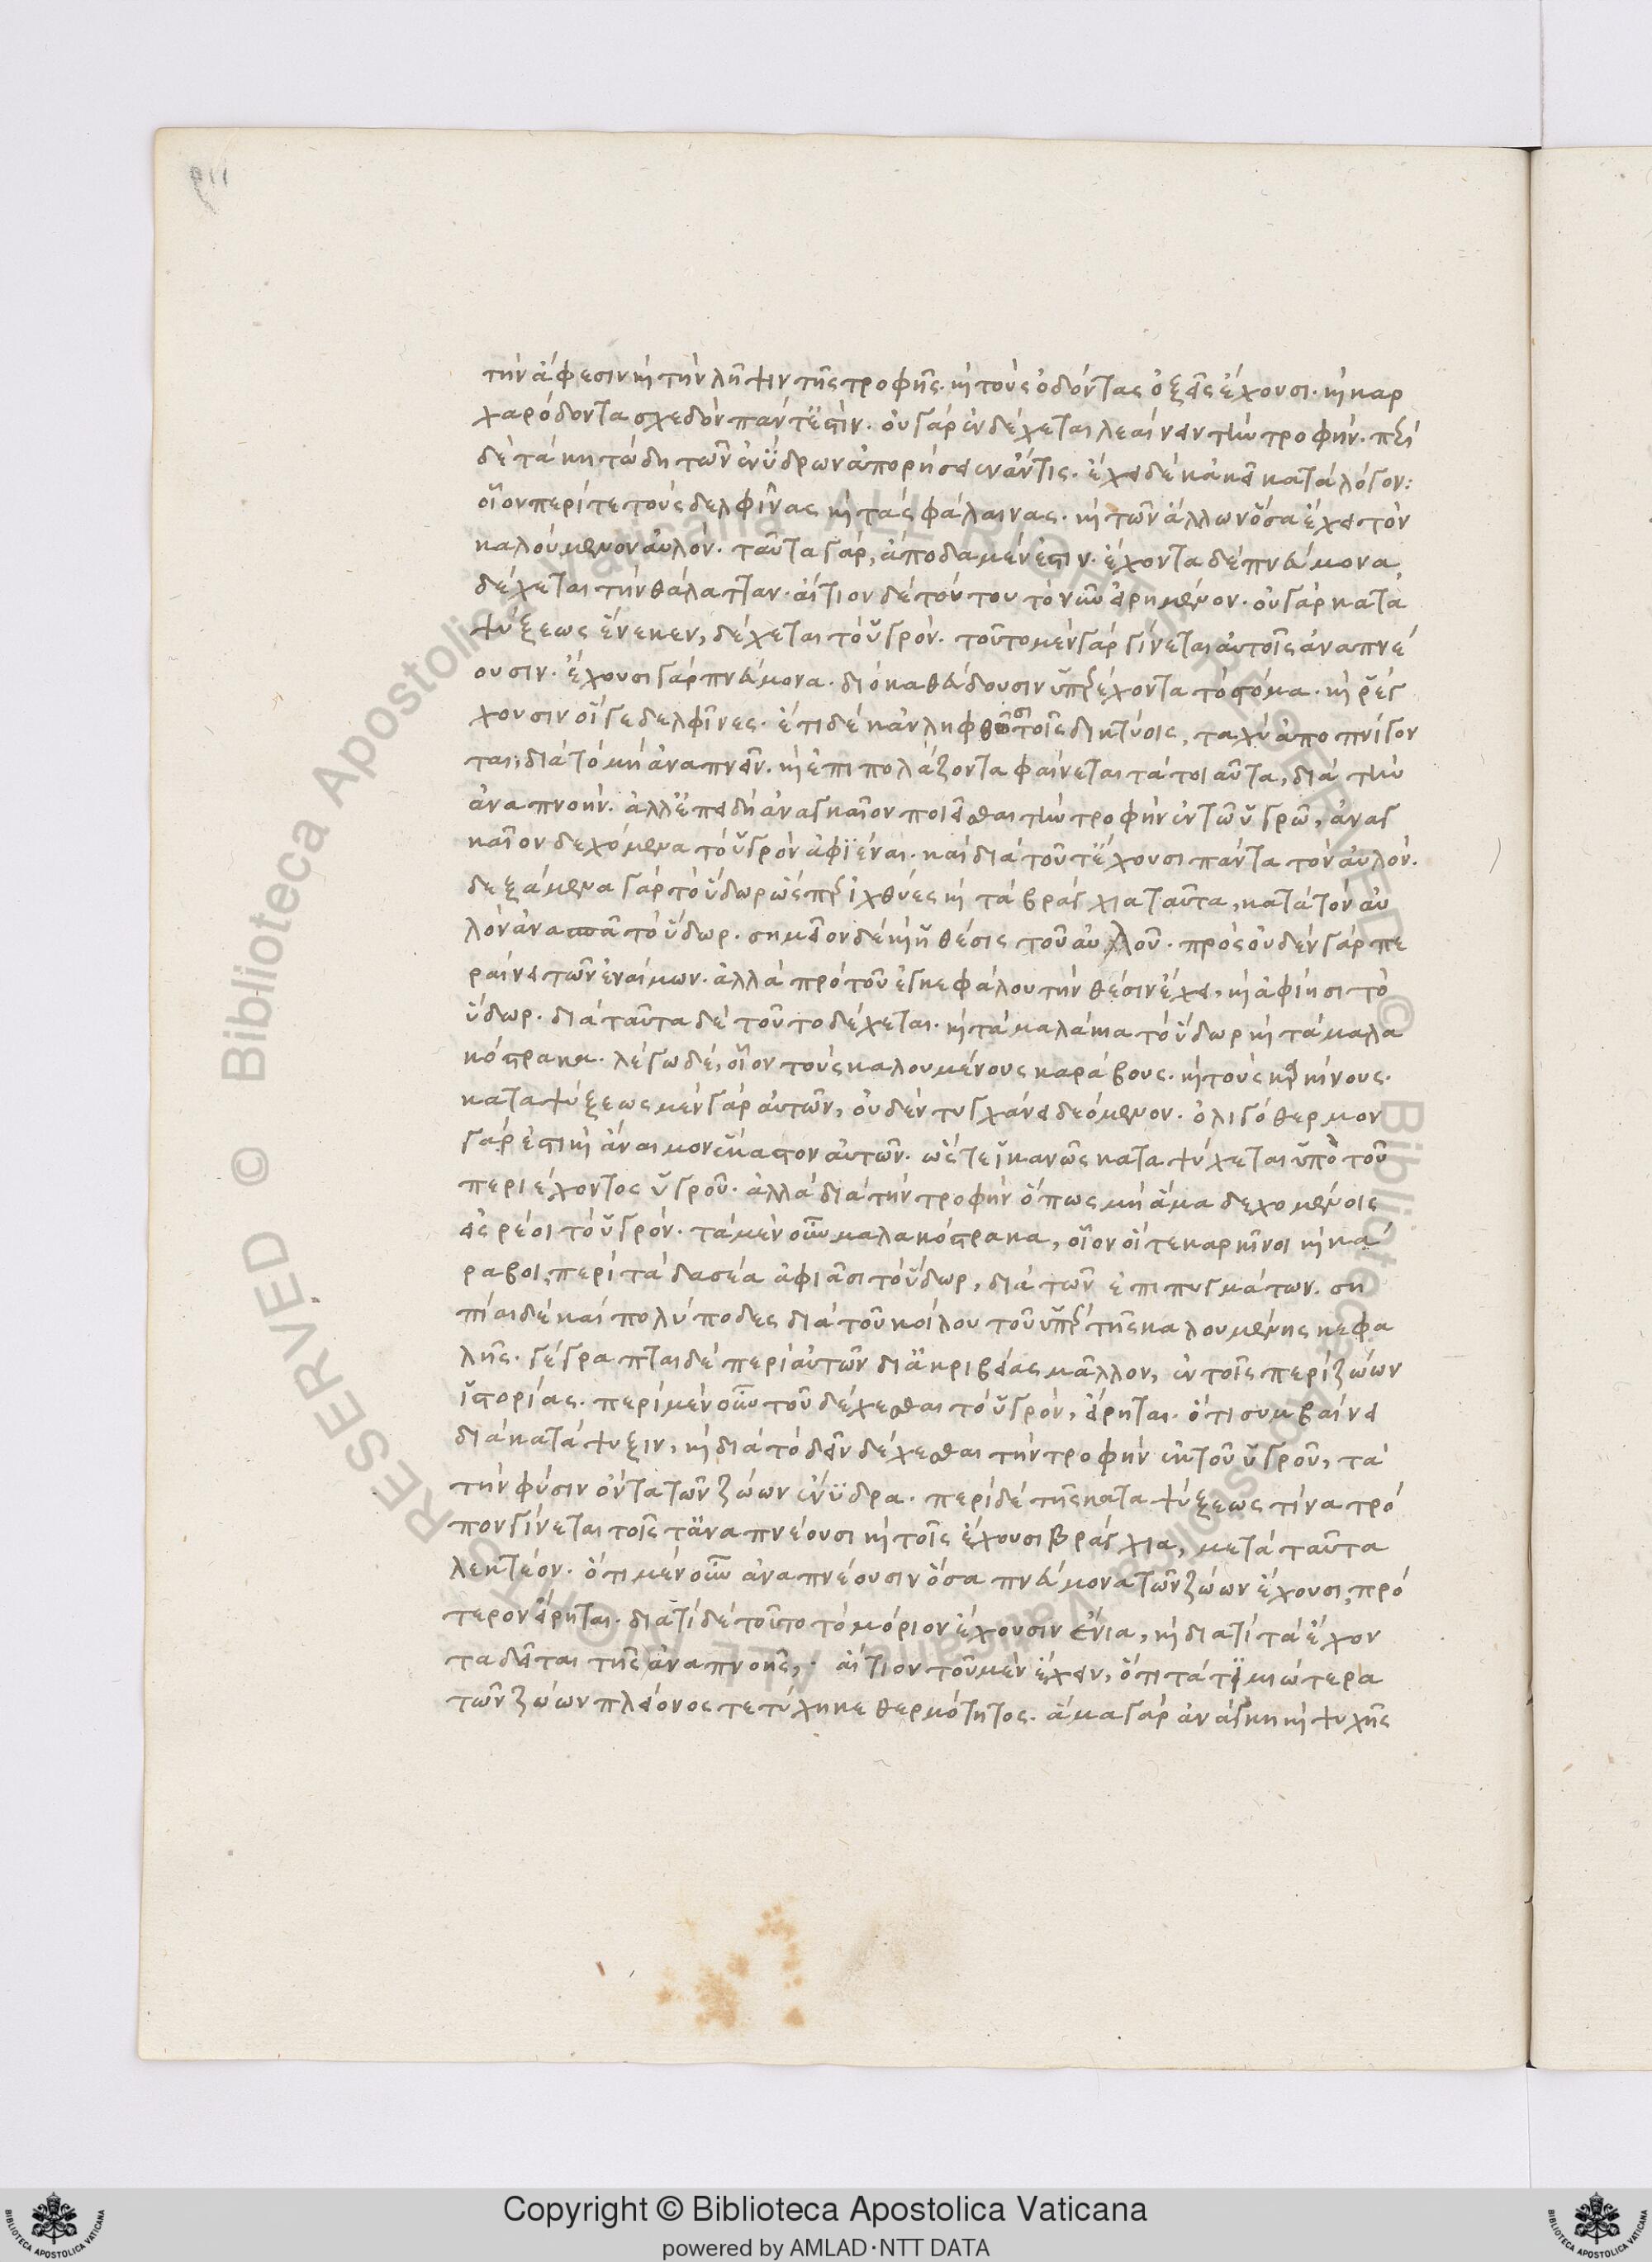 τὴν ἄφεσιν καὶ τὴν λῆψιν τῆς τροφῆς. καὶ τοὺς ὀδόντας ὀξεῖς ἔχουσι. καὶ καρ
χαρόδοντα σχεδὸν πάντ' ἐστὶν. οὐ γὰρ ἐνδέχεται λεαίνειν τὴν τροφήν. περὶ
δὲ τὰ κητώδη τῶν ἐνύδρων ἀπορήσειεν ἄν τις. ἔχει δὲ κἀκεῖ κατὰ λόγον:
οἷον περί τε τοὺς δελφῖνας καὶ τὰς φάλαινας. καὶ τῶν ἄλλων ὅσα ἔχει τὸν
καλούμενον αὐλόν. ταῦτα γὰρ, ἄποδα μέν ἐστιν. ἔχοντα δὲ πνεύμονα,
δέχεται τὴν θάλατταν. αἴτιον δὲ τούτου τὸ νῦν εἰρημένον. οὐ γὰρ κατα
ψύξεως ἕνεκεν, δέχεται τὸ ὑγρόν. τοῦτο μὲν γὰρ γίνεται αὐτοῖς ἀναπνέ
ουσιν. ἔχουσι γὰρ πνεύμονα. διὸ καθεύδουσιν ὑπερέχοντα τὸ στόμα. καὶ ῥέγ
χουσιν οἵ γε δελφῖνες. ἔτι δὲ κἂν ληφθῶσι τοῖς δικτύοις, ταχὺ ἀποπνίγον
ται, διὰ τὸ μὴ ἀναπνεῖν. καὶ ἐπιπολάζοντα φαίνεται τὰ τοιαῦτα, διὰ τὴν
ἀναπνοήν. ἀλλ' ἐπειδὴ ἀναγκαῖον ποιεῖσθαι τὴν τροφὴν ἐν τῶ ὑγρῶ, ἀναγ
καῖον δεχόμενα τὸ ὑγρὸν ἀφιέναι. καὶ διὰ τοῦτ' ἔχουσι πάντα τὸν αὐλόν.
δεξάμενα γὰρ τὸ ὕδωρ ὥσπερ ἰχθύες καὶ τὰ βράγχια ταῦτα, κατὰ τὸν αὐ
λὸν ἀνασπᾶ τὸ ὕδωρ. σημεῖον δὲ καὶ ἡ θέσις τοῦ αὐλοῦ. πρὸς οὐδὲν γὰρ πε
ραίνει τῶν ἐναίμων. ἀλλὰ πρὸ τοῦ ἐγκεφάλου τὴν θέσιν ἔχει, καὶ ἀφίησι τὸ
ὕδωρ. διὰ ταῦτα δὲ τοῦτο δέχεται. καὶ τὰ μαλάκια τὸ ὕδωρ καὶ τὰ μαλα
κόστρακα. λέγω δὲ, οἷον τοὺς καλουμένους καράβους. καὶ τοὺς καρκίνους.
καταψύξεως μὲν γὰρ αὐτῶν, οὐδὲν τυγχάνει δεόμενον. ὀλιγόθερμον
γάρ ἐστι καὶ ἄναιμον ἕκαστον αὐτῶν. ὥστε ἱκανῶς καταψύχεται ὑπὸ τοῦ
περιέχοντος ὑγροῦ. ἀλλὰ διὰ τὴν τροφὴν ὅπως μὴ ἅμα δεχομένοις
εἰσρέοι τὸ ὑγρόν. τὰ μὲν οὖν μαλακόστρακα, οἷον οἵ τε καρκῖνοι καὶ κά
ραβοι, περὶ τὰ δασέα ἀφιᾶσι τὸ ὕδωρ, διὰ τῶν ἐπιπυγμάτων. ση
πίαι δὲ καὶ πολύποδες διὰ τοῦ κοίλου τοῦ ὑπὲρ τῆς καλουμένης κεφα
λῆς. γέγραπται δὲ περὶ αὐτῶν δι' ἀκριβείας μᾶλλον, ἐν τοῖς περὶ ζώων
ἱστορίας. περὶ μὲν οὖν τοῦ δέχεσθαι τὸ ὑγρὸν, εἴρηται. ὅτι συμβαίνει
διὰ κατάψυξιν, καὶ διὰ τὸ δεῖν δέχεσθαι τὴν τροφὴν ἐκ τοῦ ὑγροῦ, τὰ
τὴν φύσιν ὄντα τῶν ζώων ἔνυδρα. περὶ δὲ τῆς καταψύξεως τίνα τρό
πον γίνεται τοῖς τ' ἀναπνέουσι καὶ τοῖς ἔχουσι βράγχια, μετὰ ταῦτα
λεκτέον. ὅτι μὲν οὖν ἀναπνέουσιν ὅσα πνεύμονα τῶν ζώων ἔχουσι, πρό
τερον εἴρηται. διατί δὲ τοῦτο τὸ μόριον ἔχουσιν ἔνια, καὶ διατί τὰ ἔχον
τα δεῖται τῆς ἀναπνοῆς, . αἴτιον τοῦ μὲν ἔχειν, ὅτι τὰ τιμιώτερα
τῶν ζώων πλείονος τετύχηκε θερμότητος. ἅμα γὰρ ἀνάγκη καὶ ψυχῆς
© Biblioteca Apostolica Vaticana ALL RIGHTS RESERVED
Copyright © Biblioteca Apostolica Vaticana
powered by AMLAD·NTT DATA